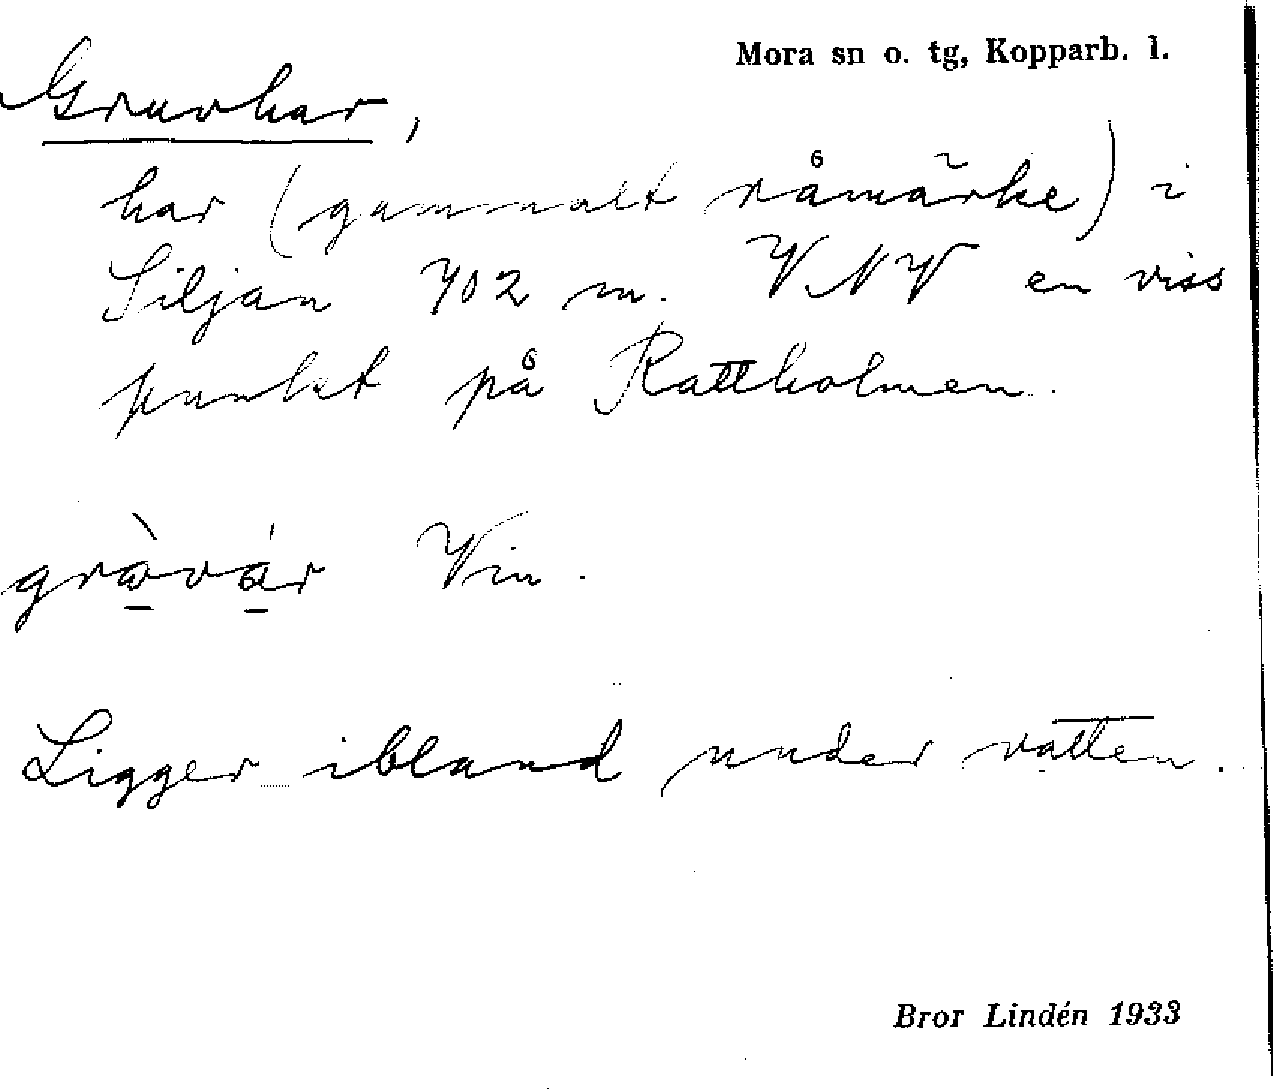 Mora sn o. tg, Kopparb. l.
Gruvhar,
har (gammalt råmärke) i
Siljan 702 m. VNV en viss
punkt på Rattholmen.
gràvár Vin.
Ligger ibland under vatten.
Bror Lindén 1933